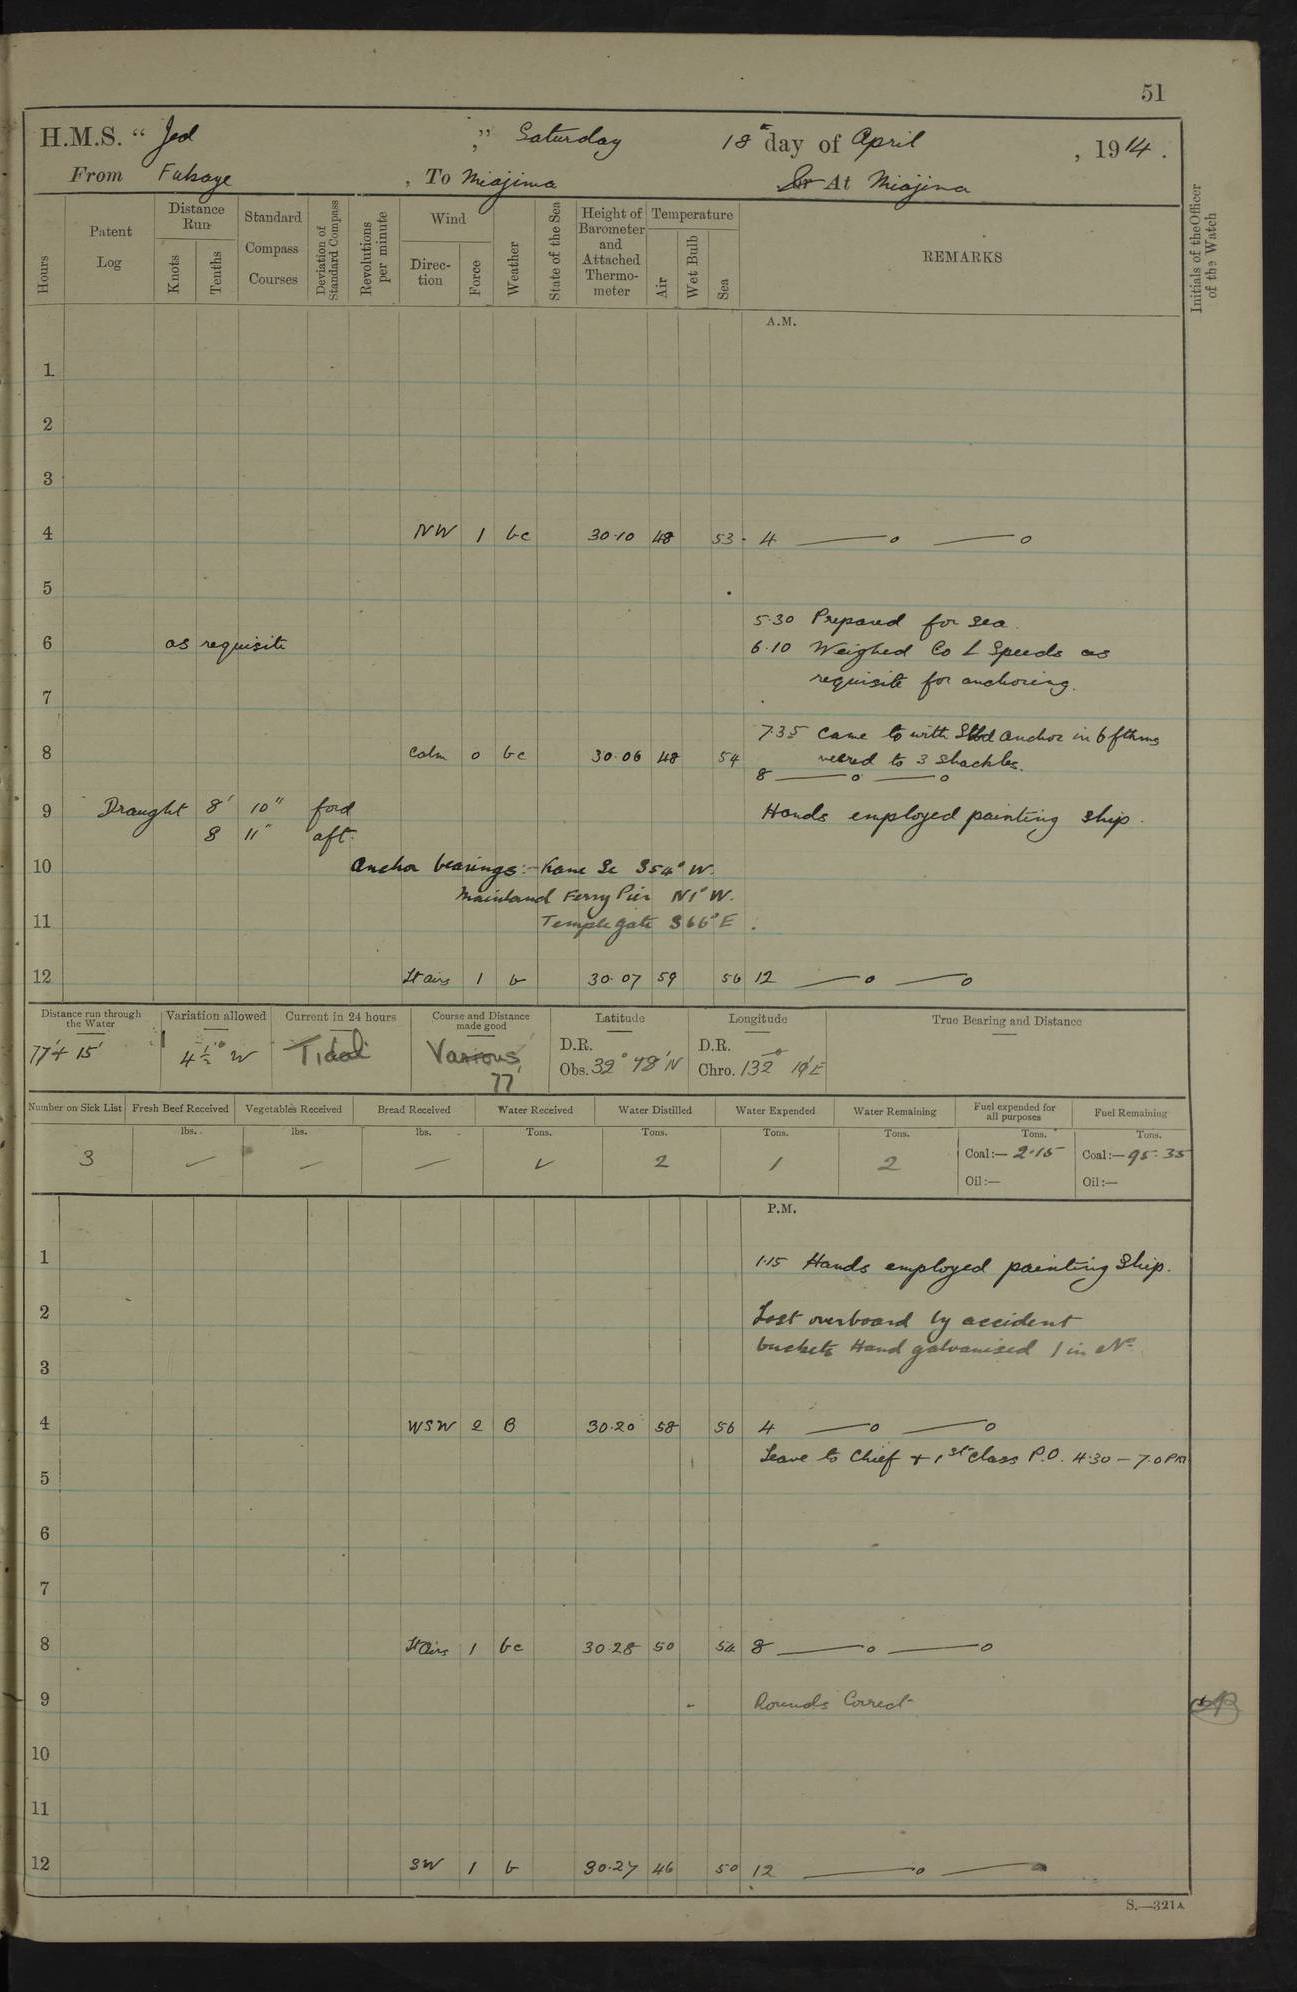 51
H.M.S. “ Jed ,” Saturday 18th day of April , 1914 .
From , To Miajima Or At Miajima
Hours Patent Log Distance Run Knots Tenths Standard Compass Courses Deviation of Standard Compass Revolutions per minute Wind Direc-tion Force Weather State of the Sea Height of Barometer and Attached Thermo-meter Temperature Air Wet Bulb Sea REMARKS Initials of the Officer of the Watch
A.M.
1
2
3
4 NW 1 bc 30.10 48 53 4 —o —o
5
5.30 Prepared for Sea.
6 as requisite 6.10 Weighed Co & Speeds as
requisite for anchoring.
7
7.35 Came to with Stbd anchor in 6 fthms
8 Calm 0 bc 30.06 48 54 veered to 3 Shackles.
8 —o —o
9 Draught 8' 10" ford Hands employed painting Ship.
8 11" aft.
10 Anchor bearings:- Kane Se S54°W.
Mainland Ferry Pier N1°W.
11 Temple gate S66°E.
12 Lt airs 1 b 30.07 59 56 12 —o —o
Distance run through the Water Variation allowed Current in 24 hours Course and Distance made good Latitude Longitude True Bearing and Distance
D.R. D.R.
77'+ 15' 4½° W Tidal Various 77' Obs. Chro. 132° 19'E
Number on Sick List Fresh Beef Received Vegetables Received Bread Received Water Received Water Distilled Water Expended Water Remaining Fuel expended for all purposes Fuel Remaining
lbs. lbs. lbs. Tons. Tons. Tons. Tons. Tons. Tons.
3 — — — ✓ 2 1 2 Coal:— 2.15 Coal:— 95.35
Oil:— Oil:—
P.M.
1 1.15 Hands employed painting Ship.
2 Lost overboard by accident
buckets Hand galvanised 1 in No
3
4 WSW 2 B 30.20 58 56 4 —o —o
Leave to Chief + 1st Class P.O. 4.30 – 7.0 PM
5
6
7
8 Lt Airs 1 bc 30.28 50 54 8 —o —o
9 Rounds Correct
10
11
12 SW 1 b 30.27 46 50 12 —o —o
S.—321A